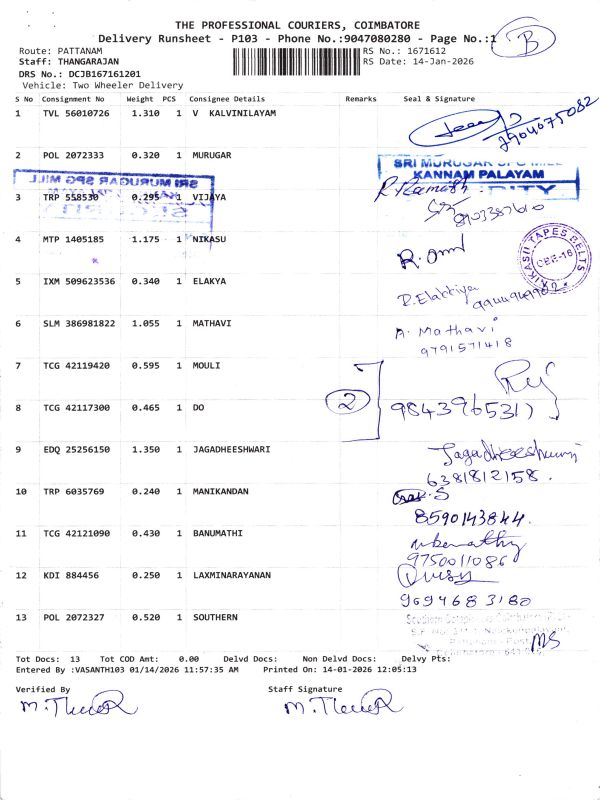 THE PROFESSIONAL COURIERS, COIMBATORE
Delivery Runsheet - P103 - Phone No.:9047080280 - Page No.:1
B
Route: PATTANAM
RS No.: 1671612
Staff: THANGARAJAN
RS Date: 14-Jan-2026
DRS No.: DCJB167161201
Vehicle: Two Wheeler Delivery
S No Consignment No Weight PCS Consignee Details Remarks Seal & Signature
1 TVL 56010726 1.310 1 V KALVINILAYAM
7904075082
2 POL 2072333 0.320 1 MURUGAR
SRI MURUGAR SPG MILL
KANNAM PALAYAM
SRI MURUGAR SPG MILL
3 TRP 558530 0.295 1 VIJAYA
R. Ramesh
8903387610
4 MTP 1405185 1.175 1 NIKASU
TAPES BELTS
CBE-16
5 IXM 509623536 0.340 1 ELAKYA
R. Elakkiya
6 SLM 386981822 1.055 1 MATHAVI
A. Mathavi
9791571418
7 TCG 42119420 0.595 1 MOULI
8 TCG 42117300 0.465 1 DO
2
9843965317
9 EDQ 25256150 1.350 1 JAGADHEESHWARI
Jagadheeshwari
6381812158.
10 TRP 6035769 0.240 1 MANIKANDAN
8590143844.
11 TCG 42121090 0.430 1 BANUMATHI
9750011086
12 KDI 884456 0.250 1 LAXMINARAYANAN
9694683180
13 POL 2072327 0.520 1 SOUTHERN
MS
Tot Docs: 13 Tot COD Amt: 0.00 Delvd Docs: Non Delvd Docs: Delvy Pts:
Entered By :VASANTH103 01/14/2026 11:57:35 AM Printed On: 14-01-2026 12:05:13
Verified By
Staff Signature